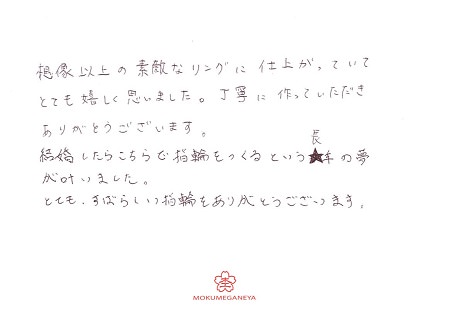 想像以上の素敵なリングに仕上がっていて
とても嬉しく思いました。丁寧に作っていただき
ありがとうございます。
結婚したらこちらで指輪をつくるという長年の夢
が叶いました。
とても、すばらしい指輪をありがとうございます。
MOKUMEGANEYA